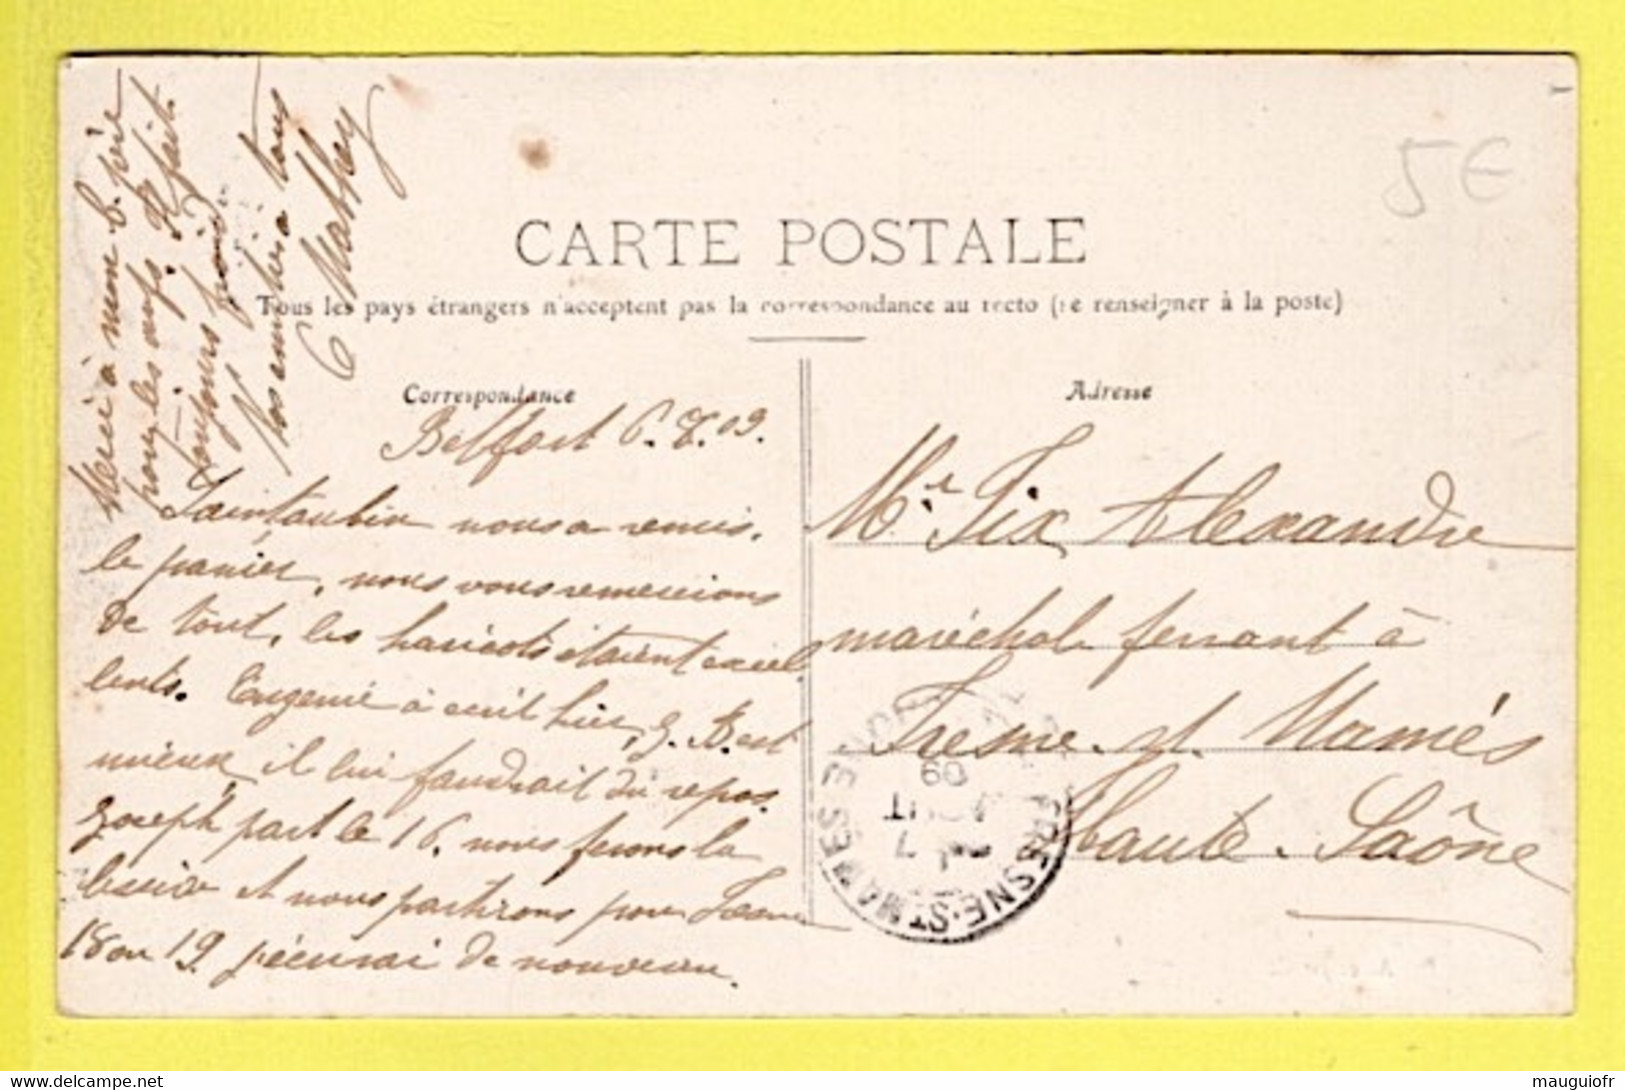 5€
CARTE POSTALE
Tous les pays étrangers n'acceptent pas la correspondance au recto (se renseigner à la poste)
Correspondance
Belfort 6.8.09.
Saintaubin nous a remis
le panier, nous vous remercions
de tout, les haricots étaient excel
lents. Eugenie à ecrit hier, J. B. est
mieux, il lui faudrait du repos.
Joseph part le 16. nous ferons la
lessive et nous partirons pour
18 ou 19 j'écrirai de nouveau.
Merci à mme b. père
pour les œufs. Il fait
toujours froid.
Nos amitiés à tous
C Mathey
Adresse
Mr Fix Alexandre
maréchal ferrant à
Fresne-st. Mamés
Haute-Saône
FRESNE-ST MAMES
7
AOUT
09
mauguiofr
www.delcampe.net